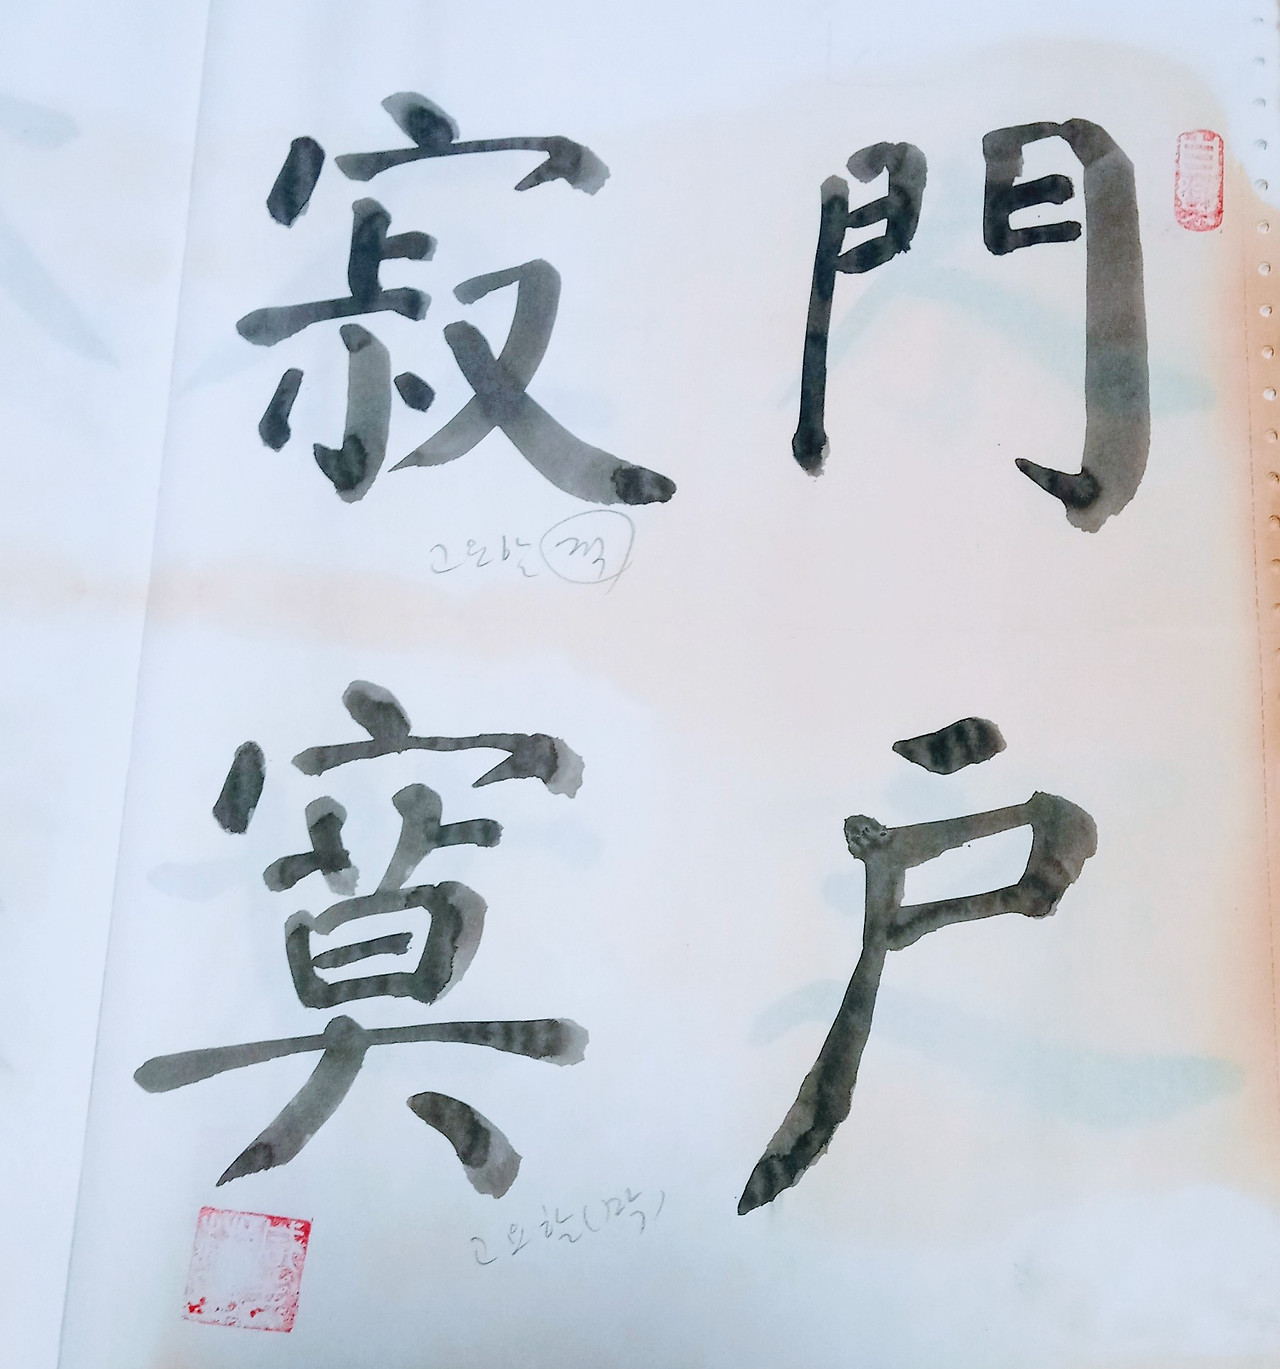 門戶
寂寞
고요할 적
고요할(막)